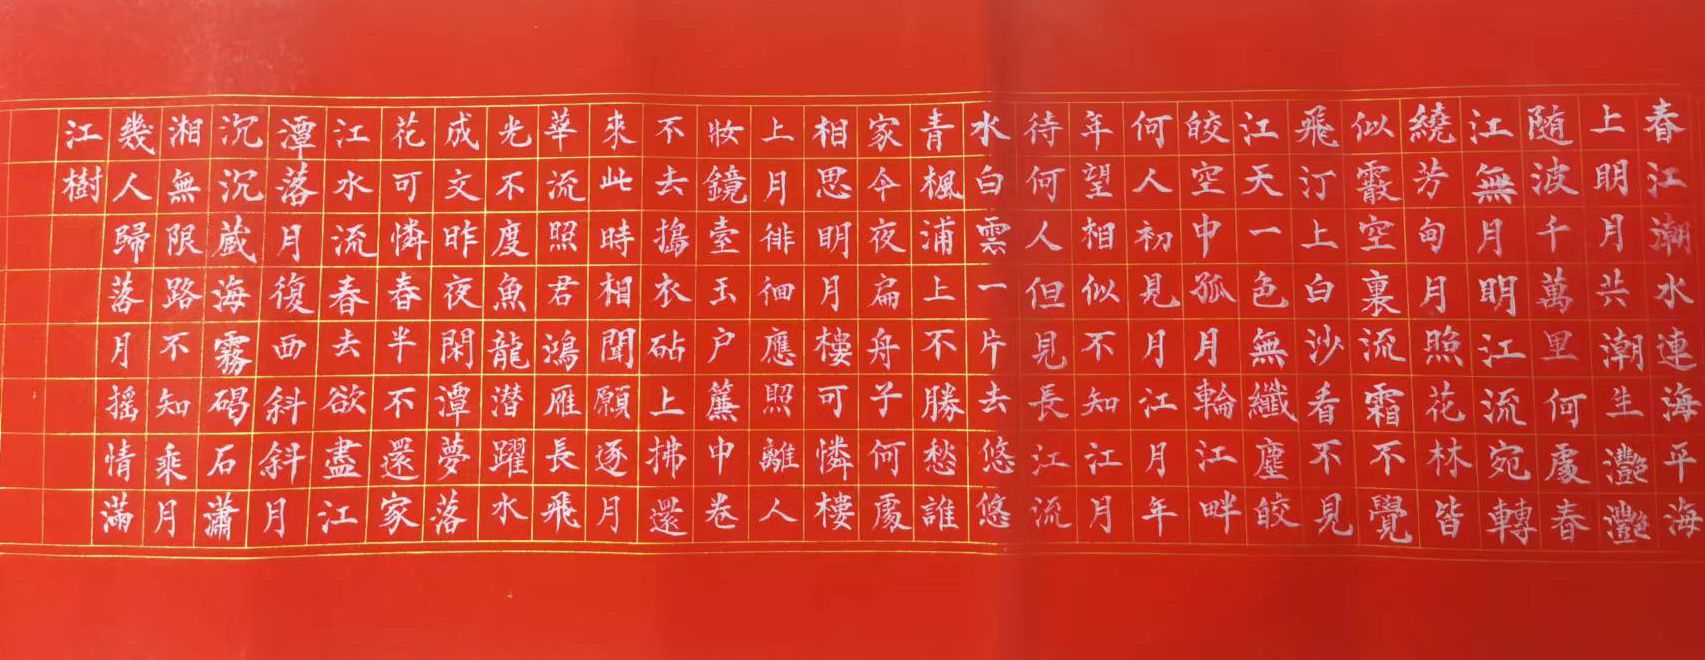 春江潮水連海平海
上明月共潮生灧灧
随波千萬里何處春
江無月明江流宛轉
繞芳甸月照花林皆
似霰空裏流霜不覺
飛汀上白沙看不見
江天一色無纖塵皎
皎空中孤月輪江畔
何人初見月江月年
年望相似不知江月
待何人但見長江流
水白雲一片去悠悠
青楓浦上不勝愁誰
家今夜扁舟子何處
相思明月樓可憐樓
上月徘徊應照離人
妝鏡臺玉户簾中卷
不去搗衣砧上拂還
來此時相聞願逐月
華流照君鴻雁長飛
光不度魚龍潜躍水
成文昨夜閑潭夢落
花可憐春半不還家
江水流春去欲盡江
潭落月復西斜斜月
沉沉藏海霧碣石瀟
湘無限路不知乘月
幾人歸落月摇情滿
江樹